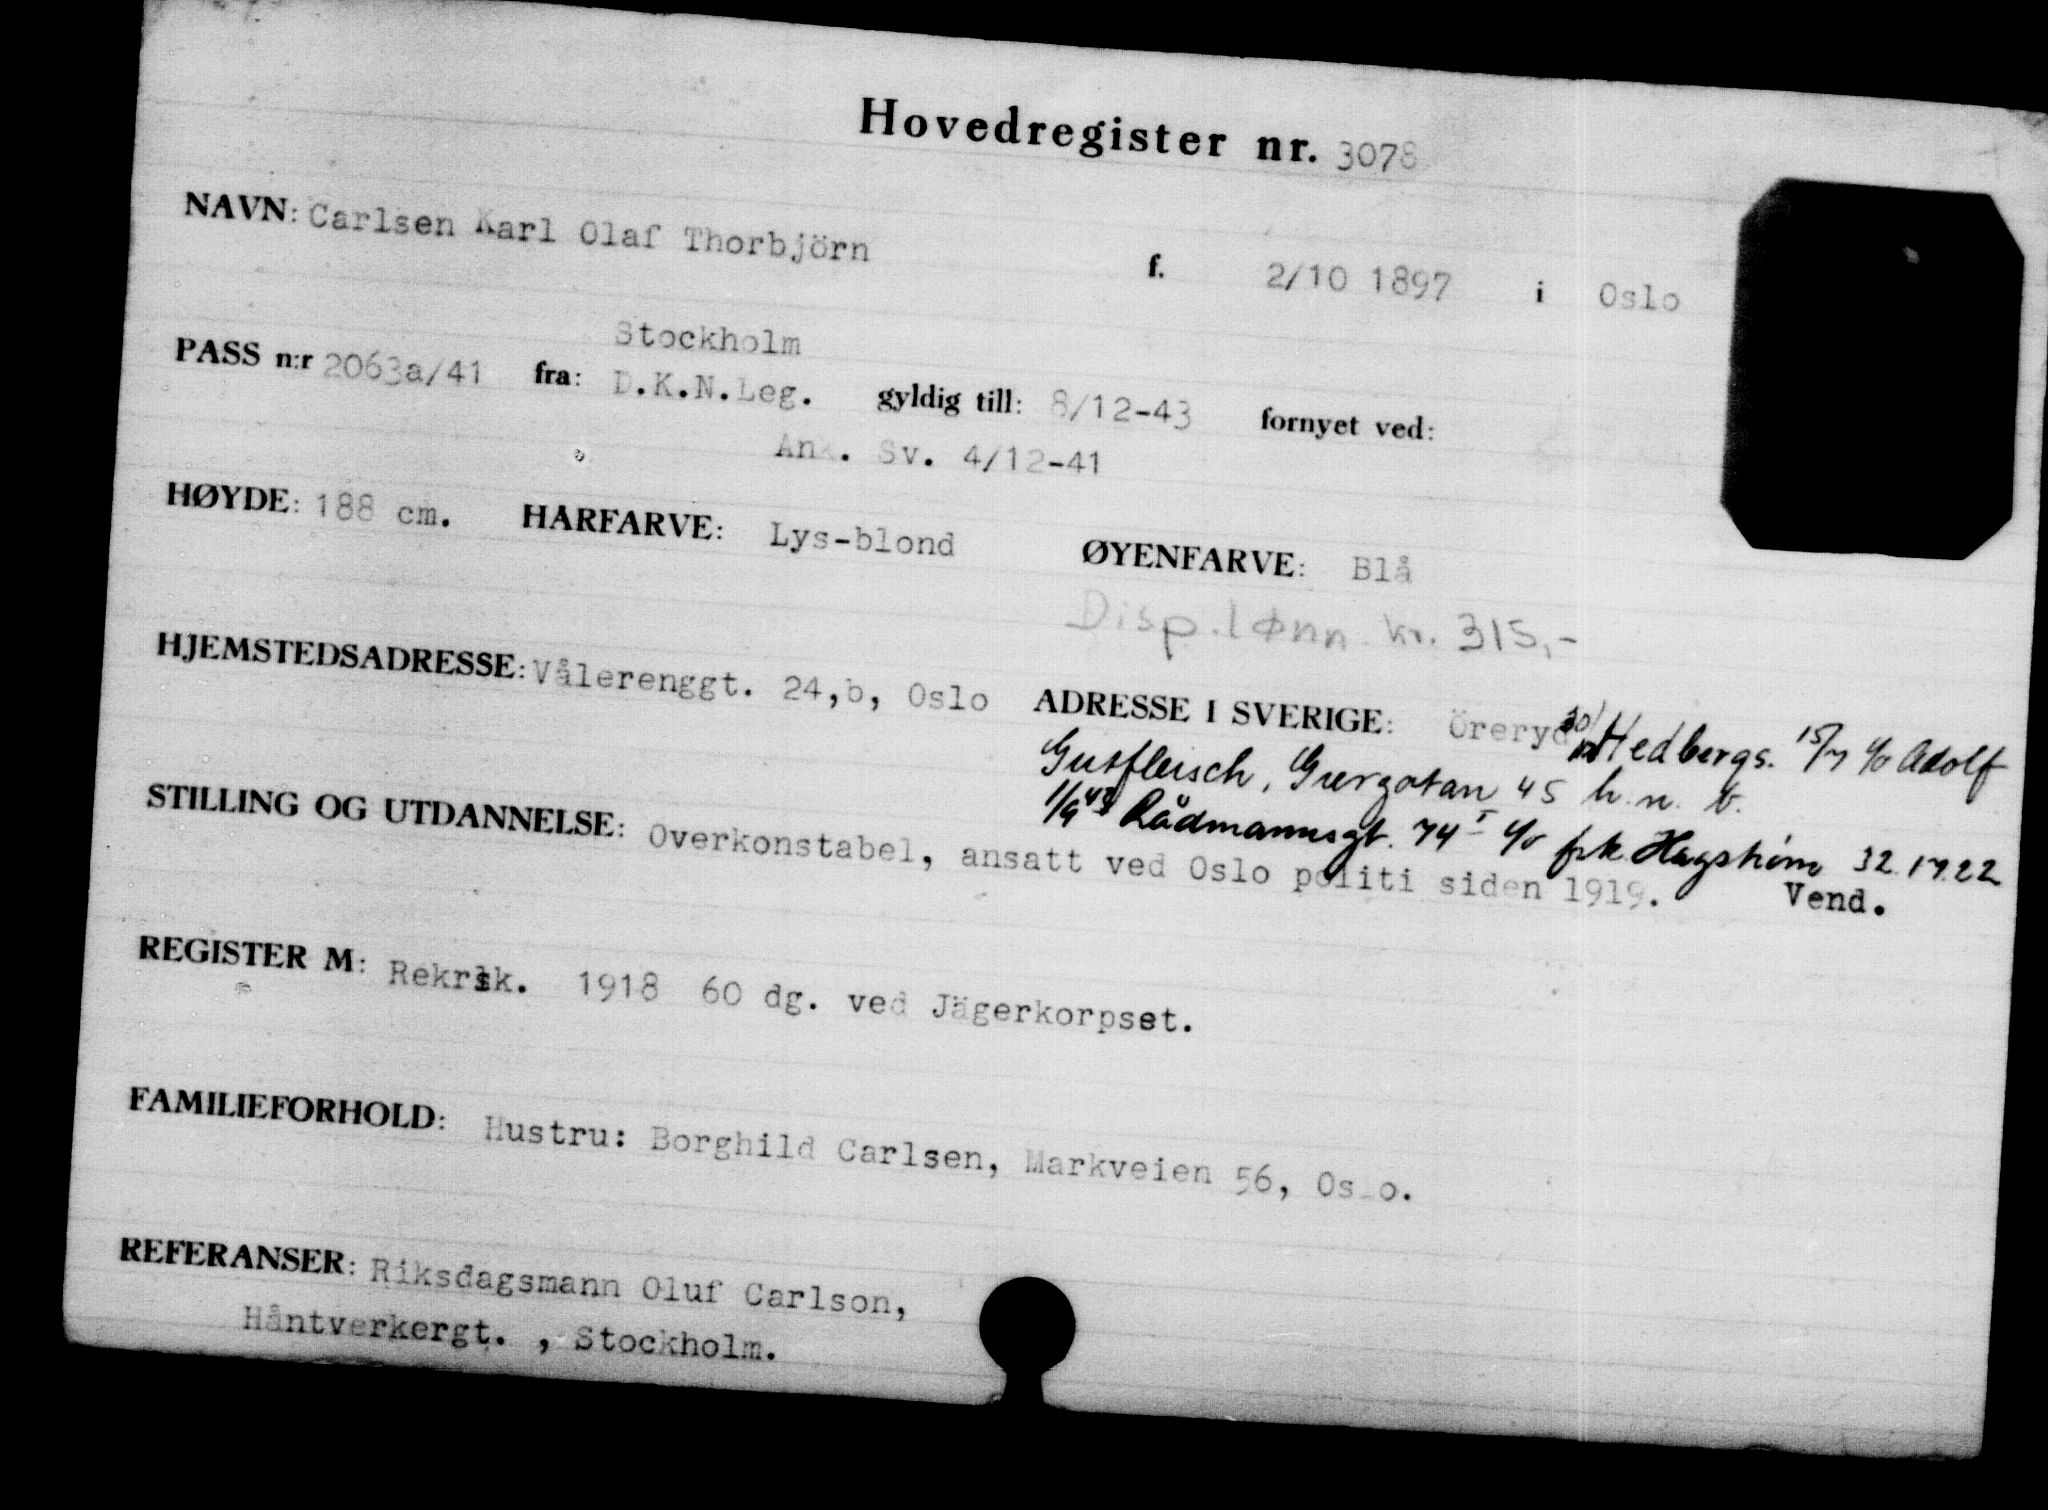 Hovedregister nr. 3078
NAVN: Carlsen Karl Olaf Thorbjörn f. 2/10 1897 i Oslo
Stockholm
PASS n:r 2063a/41 fra: D.K.N.Leg. gyldig till: 8/12-43 fornyet ved:
Ank. Sv. 4/12-41
HØYDE: 188 cm. HARFARVE: Lys-blond ØYENFARVE: Blå
Disp. lønn kr. 315,-
HJEMSTEDSADRESSE: Vålerenggt. 24,b, Oslo ADRESSE I SVERIGE: Öreryd Hedbergs. 15/7 c/o Adolf
Gutfleisch, 45 h.n.b.
1/9 43 Rådmannsgt. 74 I c/o frk. Hagstrøm 32.17.22
STILLING OG UTDANNELSE: Overkonstabel, ansatt ved Oslo politi siden 1919. Vend.
REGISTER M: Rekrsk. 1918 60 dg. ved Jägerkorpset.
FAMILIEFORHOLD: Hustru: Borghild Carlsen, Markveien 56, Oslo.
REFERANSER: Riksdagsmann Oluf Carlson,
Håntverkergt. , Stockholm.